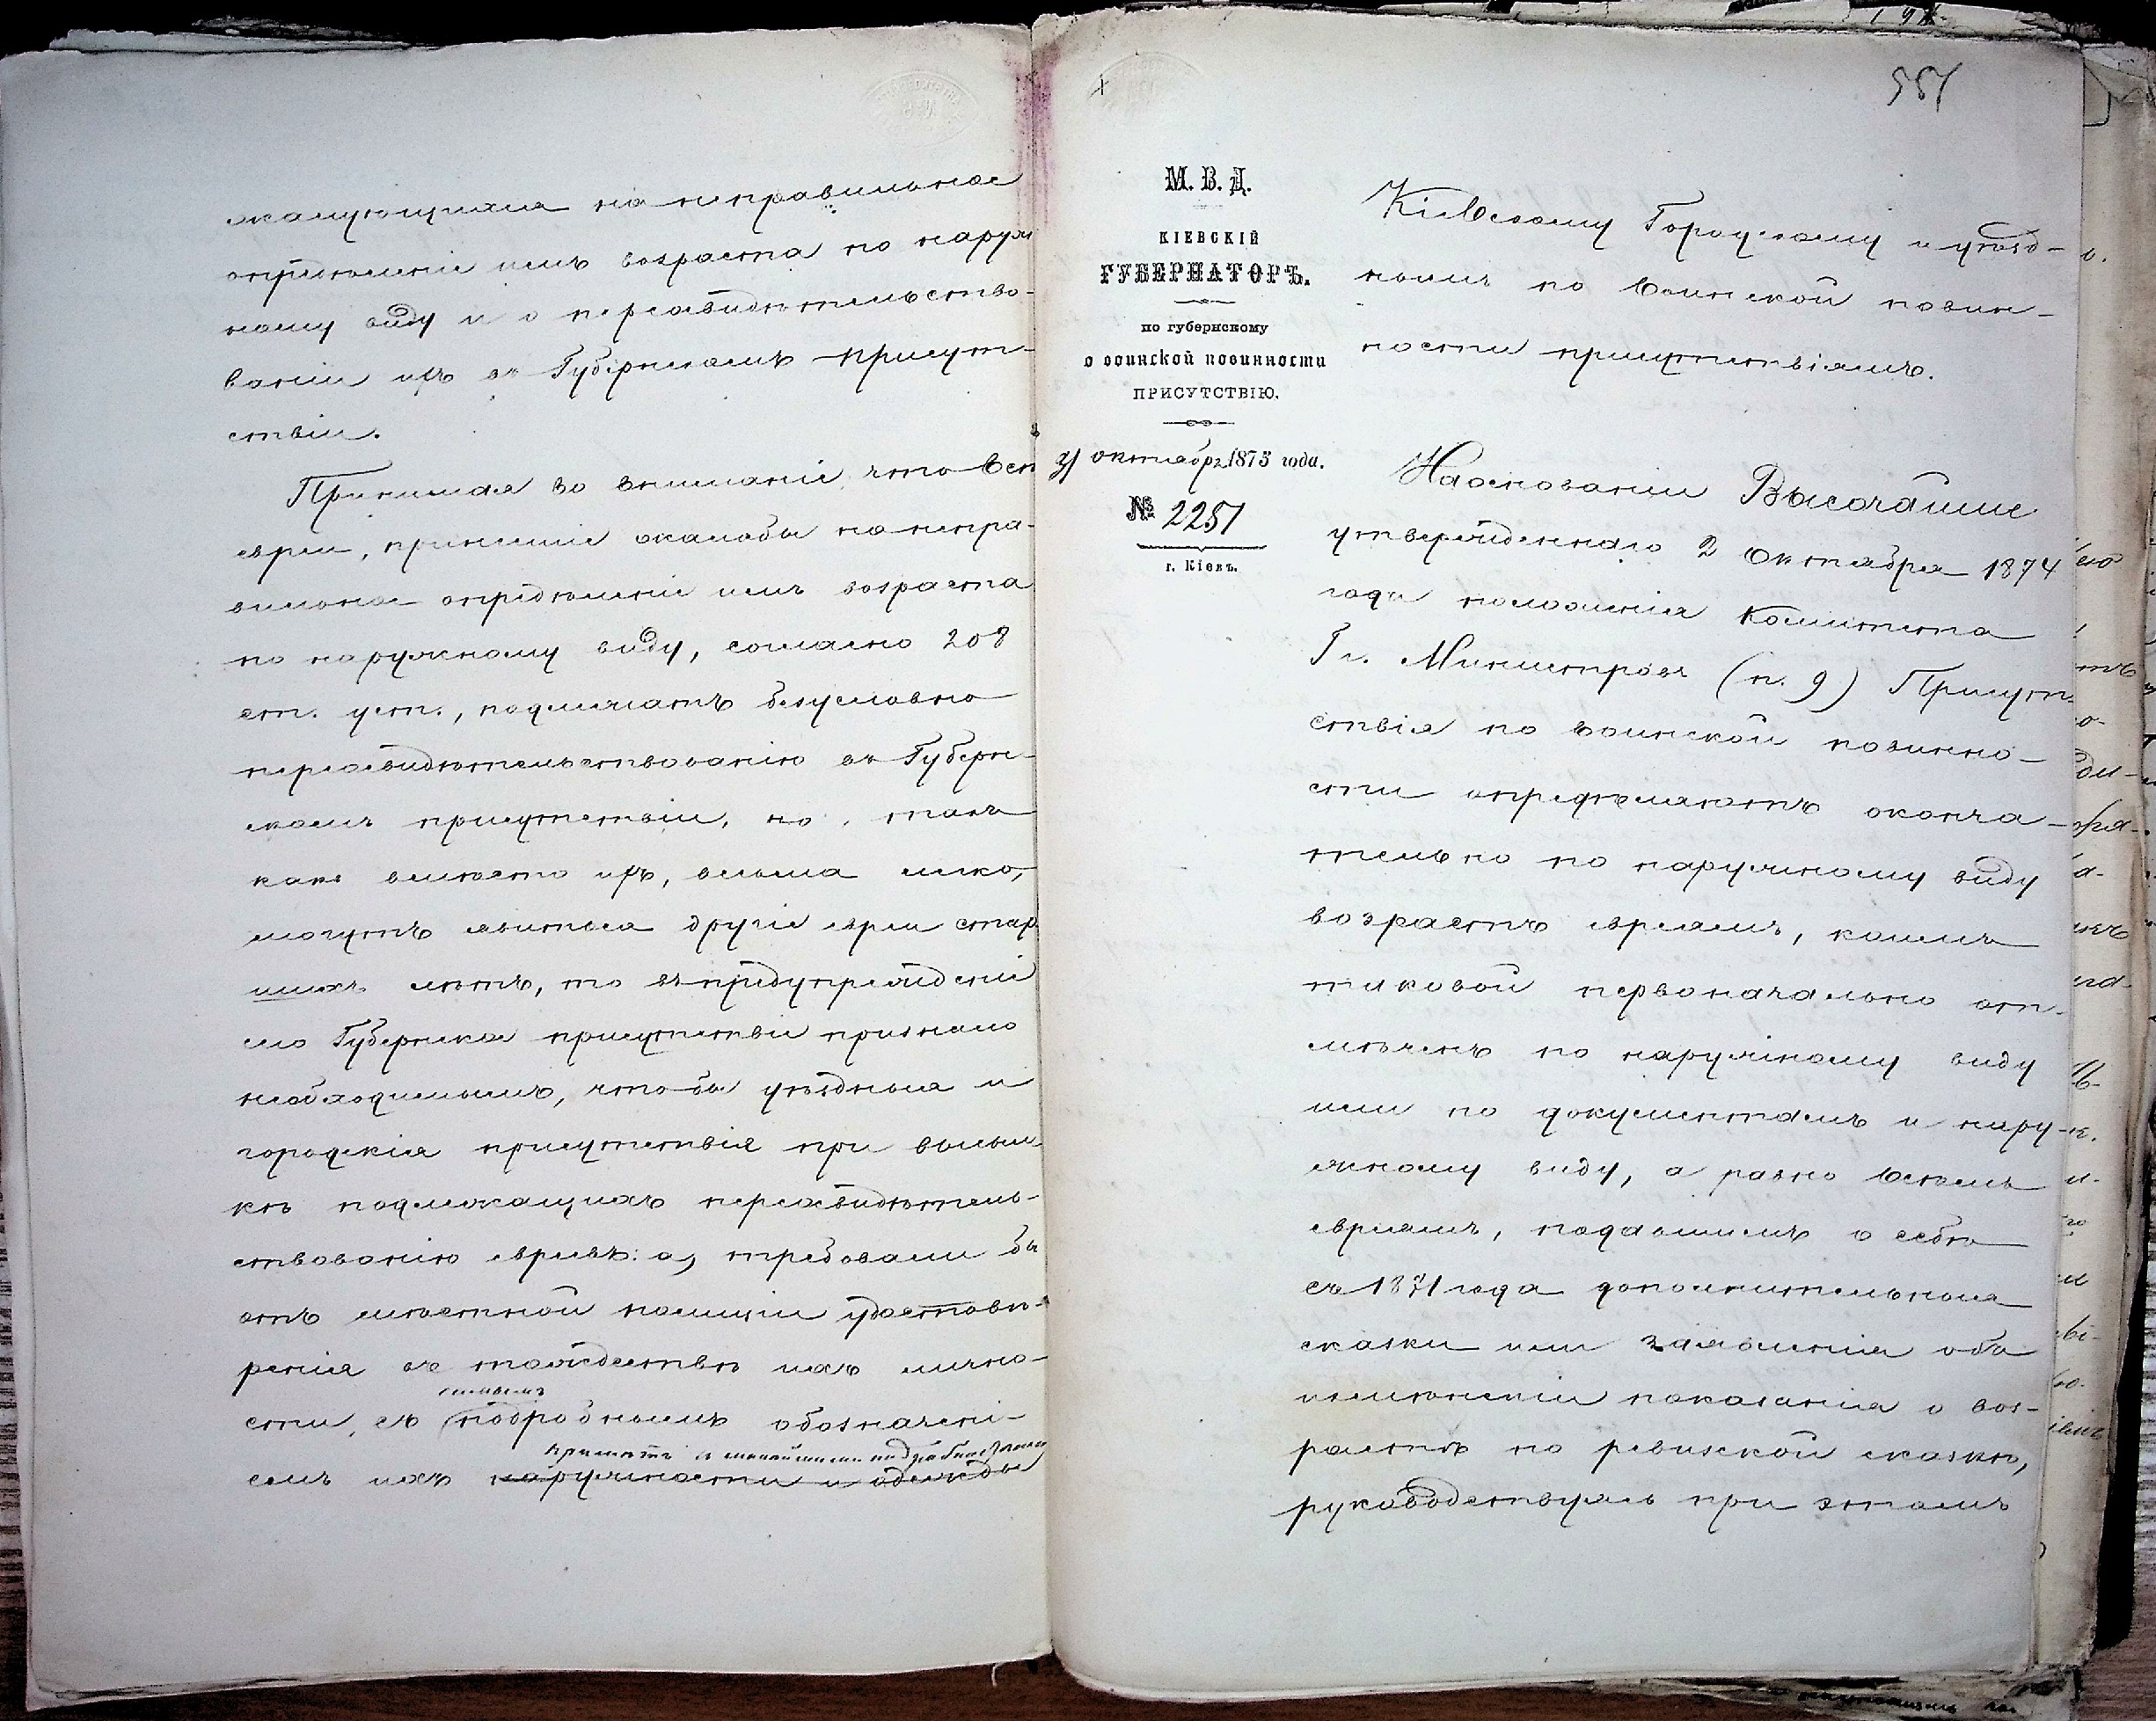 жалующихся на неправильное
опредѣленіе имъ возраста по наруж
ному виду и о переосвидѣтельство-
ваніи ихъ въ Губернскомъ присут-
ствіи.
Принимая во вниманіе, что всѣ
евреи, принесшіе жалобы на непра-
вильное опредѣленіе имъ возраста
по наружному виду, согласно 208
ст. уст., подлежатъ безусловно
переосвидѣтельствованію въ Губерн-
скомъ присутствіи, но, такъ
какъ вмѣсто ихъ, весьма легко,
могутъ явиться другіе евреи стар
шихъ лѣтъ, то въ предупрежденіе
сего Губернское присутствіе признало
необходимымъ, что-бы уѣздныя и
городскія присутствія при высыл-
кѣ подлежащихъ переосвидѣтель-
ствованію евреевъ: а, требовали бы
отъ мѣстной полиціи удостовѣ-
ренія въ тождествѣ ихъ лично-
сти, съ подробнымъ обозначені-
емъ ихъ примѣтъ наружности и одежды
М. В. Д.
КІЕВСКІЙ
ГУБЕРНАТОРЪ.
по губернскому
о воинской повинности
ПРИСУТСТВІЮ.
31 октября 1875 года.
№ 2251
г. Кіевъ.
551
Кіевскому Городскому и уѣзд-
нымъ по воинской повин-
ности присутствіямъ.
На основаніи Высочайше
утвержденнаго 2 Октября 1874
года положенія Комитета
Гг. Министровъ (п. 9) Присут-
ствія по воинской повинно-
сти опредѣляютъ оконча-
тельно по наружному виду
возрастъ евреямъ, коимъ
таковой первоначально от-
мѣченъ по наружному виду
или по документамъ и нару-
жному виду, а равно всѣмъ
евреямъ, подавшимъ о себѣ
съ 1871 года дополнительныя
сказки или заявленія объ
измѣненіи показанія о воз-
растѣ по ревизской сказкѣ,
руководствуясь при этомъ